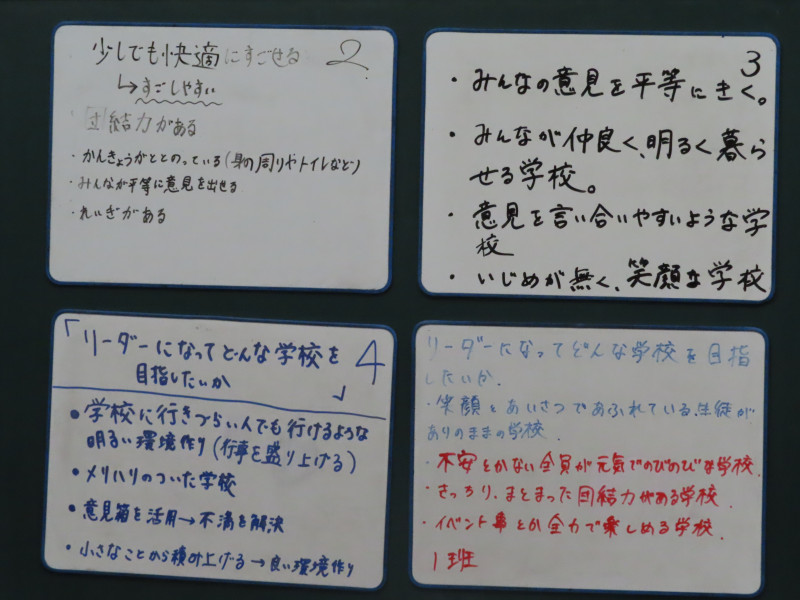 少しでも快適にすごせる 2
↳すごしやすい
団結力がある
・かんきょうがととのっている(身の周りやトイレなど)
・みんなが平等に意見を出せる
・れいぎがある
3
・みんなの意見を平等にきく。
・みんなが仲良く、明るく暮ら
せる学校。
・意見を言い合いやすいような学
校
・いじめが無く、笑顔な学校
「リーダーになってどんな学校を 4
目指したいか 」
・学校に行きづらい人でも行けるような
明るい環境作り(行事を盛り上げる)
・メリハリのついた学校
・意見箱を活用→不満を解決
・小さなことから積み上げる→良い環境作り
リーダーになってどんな学校を目指
したいか.
・笑顔とあいさつであふれている.生徒が
ありのままの学校.
・不安とかない全員が元気でのびのびな学校.
・きっちり、まとまった団結力がある学校.
・イベント事とか全力で楽しめる学校.
1班